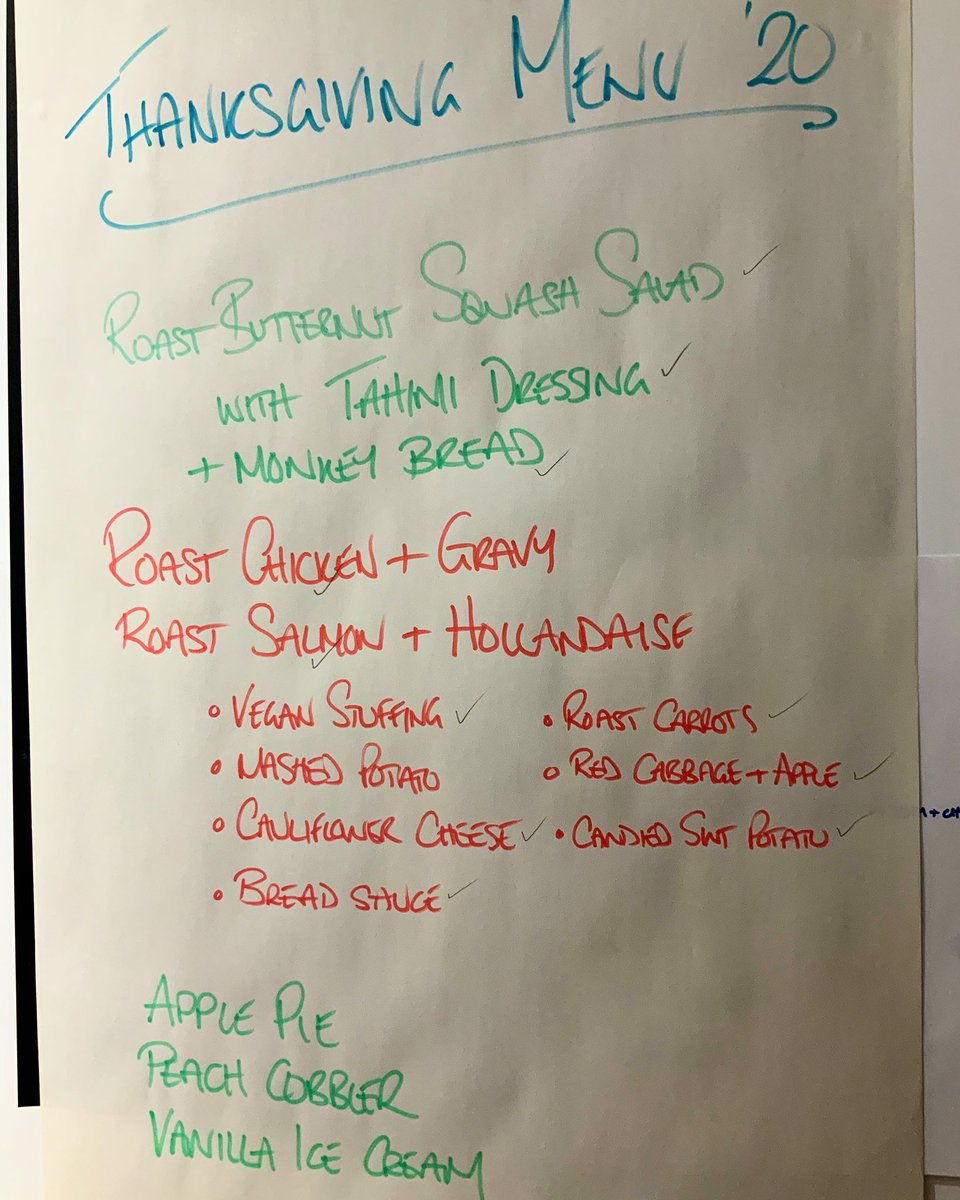 THANKSGIVING MENU '20
ROAST BUTTERNUT SQUASH SALAD ✓
WITH TAHINI DRESSING ✓
+ MONKEY BREAD ✓
ROAST CHICKEN + GRAVY
ROAST SALMON + HOLLANDAISE
• VEGAN STUFFING ✓
• MASHED POTATO
• CAULIFLOWER CHEESE ✓
• BREAD SAUCE ✓
• ROAST CARROTS ✓
• RED CABBAGE + APPLE ✓
• CANDIED SWT POTATO ✓
APPLE PIE
PEACH COBBLER
VANILLA ICE CREAM